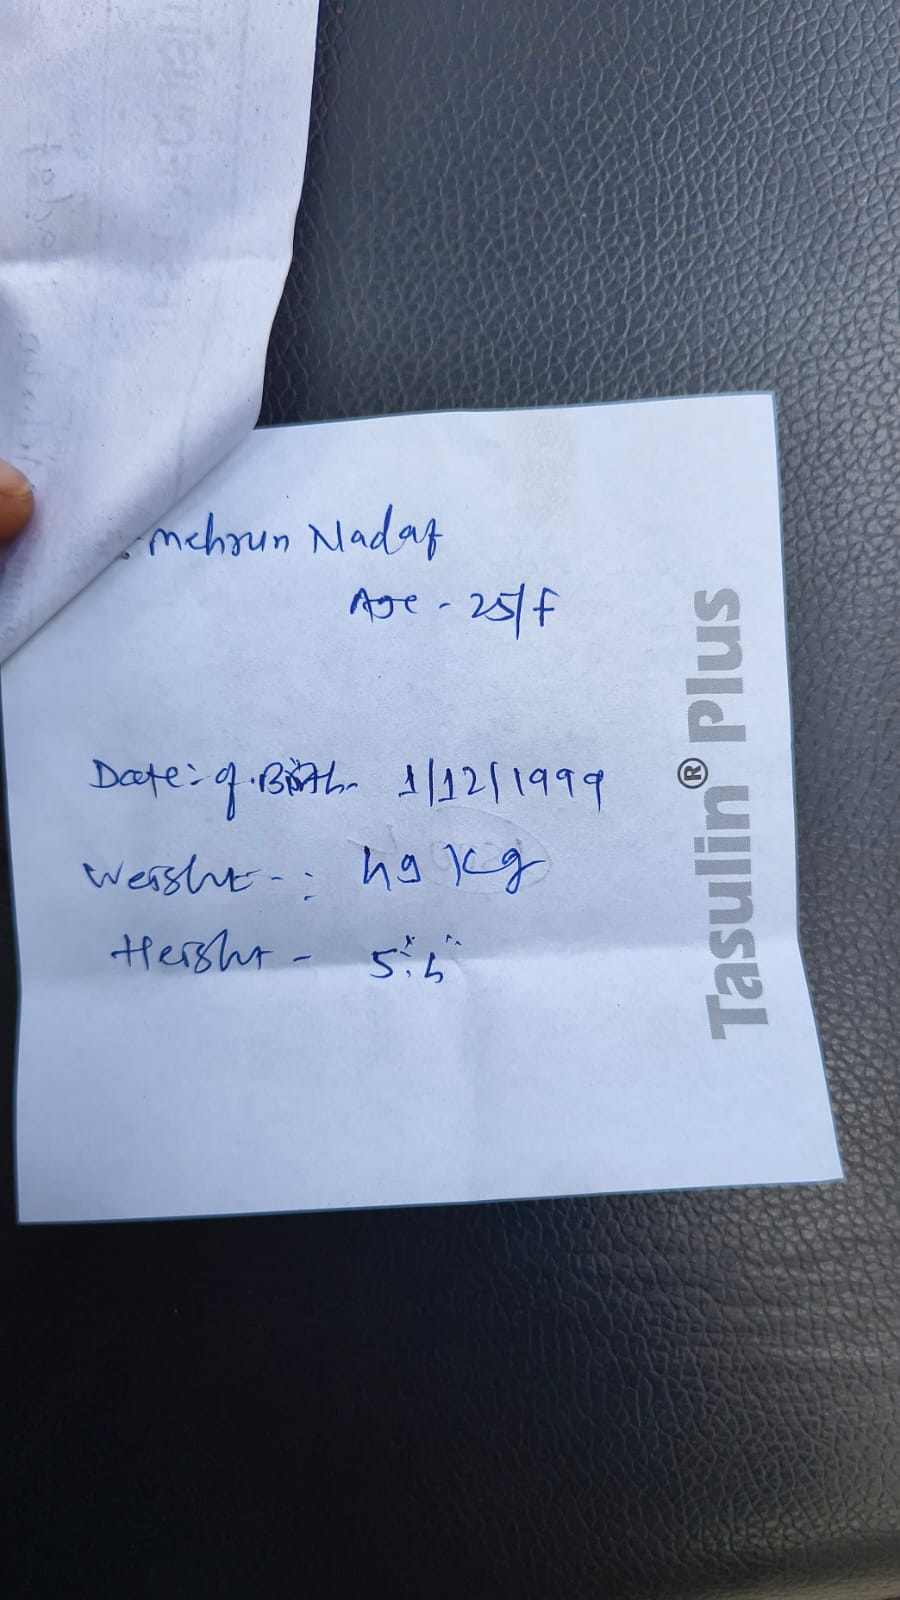 Mehrun Nadaf
Age - 25/F
Date: of. Birth - 1/12/1999
Weight - : 49 Kg
Height - 5'.5"
Tasulin® Plus